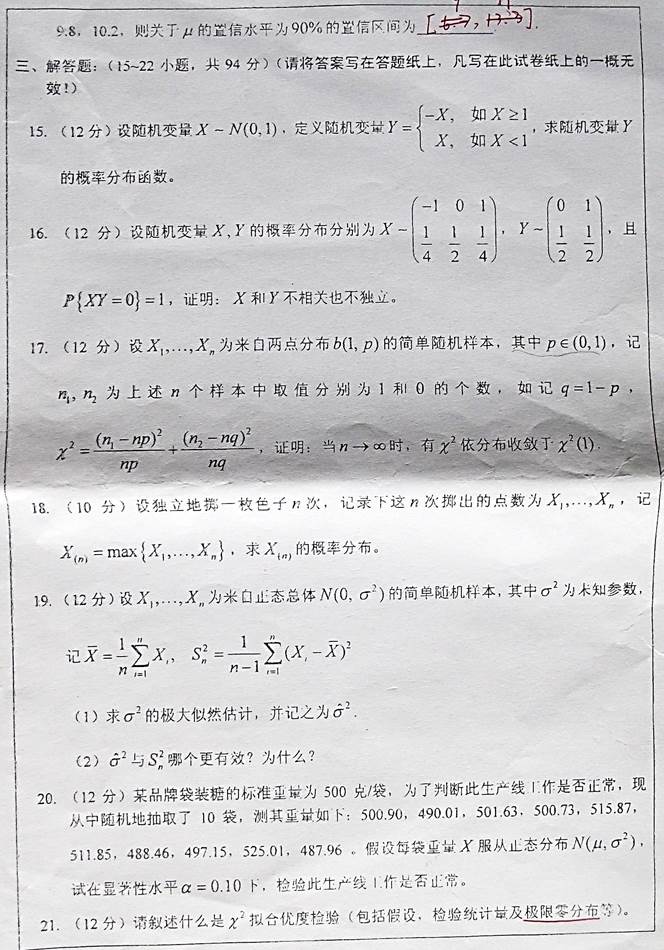 9.8，10.2，则关于 μ 的置信水平为 90% 的置信区间为 [
三、解答题：（15~22 小题，共 94 分）（请将答案写在答题纸上，凡写在此试卷纸上的一概无
效！）
15. （12 分）设随机变量 X ~ N(0,1)，定义随机变量 Y = { -X, 如 X ≥ 1; X, 如 X < 1，求随机变量 Y
的概率分布函数。
16. （12 分）设随机变量 X, Y 的概率分布分别为 X ~ (-1 0 1; 1/4 1/2 1/4)，Y ~ (0 1; 1/2 1/2)，且
P{XY = 0} = 1，证明：X 和 Y 不相关也不独立。
17. （12 分）设 X₁,…,Xₙ 为来自两点分布 b(1, p) 的简单随机样本，其中 p ∈ (0,1)，记
n₁, n₂ 为上述 n 个样本中取值分别为 1 和 0 的个数，如记 q = 1 - p，
χ² = (n₁ - np)²/np + (n₂ - nq)²/nq，证明：当 n → ∞ 时，有 χ² 依分布收敛于 χ²(1).
18. （10 分）设独立地掷一枚色子 n 次，记录下这 n 次掷出的点数为 X₁,…,Xₙ，记
X₍ₙ₎ = max{X₁,…,Xₙ}，求 X₍ₙ₎ 的概率分布。
19. （12 分）设 X₁,…,Xₙ 为来自正态总体 N(0, σ²) 的简单随机样本，其中 σ² 为未知参数，
记 X̄ = 1/n ∑ᵢ₌₁ⁿ Xᵢ, Sₙ² = 1/(n-1) ∑ᵢ₌₁ⁿ (Xᵢ - X̄)²
（1）求 σ² 的极大似然估计，并记之为 σ̂².
（2）σ̂² 与 Sₙ² 哪个更有效？为什么？
20. （12 分）某品牌袋装糖的标准重量为 500 克/袋，为了判断此生产线工作是否正常，现
从中随机地抽取了 10 袋，测其重量如下：500.90，490.01，501.63，500.73，515.87，
511.85，488.46，497.15，525.01，487.96 。假设每袋重量 X 服从正态分布 N(μ, σ²)，
试在显著性水平 α = 0.10 下，检验此生产线工作是否正常。
21. （12 分）请叙述什么是 χ² 拟合优度检验（包括假设，检验统计量及极限零分布等）。